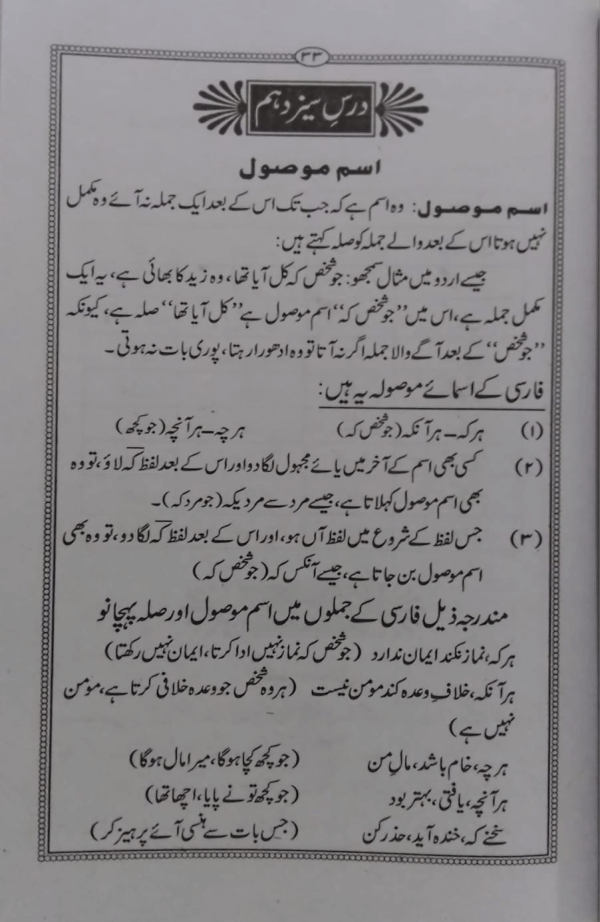 ۳۳
درسِ سیزدہم
اسم موصول
اسم موصول: وہ اسم ہے کہ جب تک اس کے بعد ایک جملہ نہ آئے وہ مکمل
نہیں ہوتا اس کے بعد والے جملہ کو صلہ کہتے ہیں:
جیسے اردو میں مثال سمجھو: جو شخص کہ کل آیا تھا، وہ زید کا بھائی ہے، یہ ایک
مکمل جملہ ہے، اس میں ”جو شخص کہ“ اسم موصول ہے ”کل آیا تھا“ صلہ ہے، کیونکہ
”جو شخص“ کے بعد آگے والا جملہ اگر نہ آتا تو وہ ادھورا رہتا، پوری بات نہ ہوتی۔
فارسی کے اسمائے موصولہ یہ ہیں:
(۱) ہر کہ – ہر آنکہ (جو شخص کہ) ہر چہ – ہر آنچہ (جو کچھ)
(۲) کسی بھی اسم کے آخر میں یائے مجہول لگا دو اور اس کے بعد لفظ کہ لاؤ، تو وہ
بھی اسم موصول کہلاتا ہے، جیسے مرد سے مردیکہ (جو مرد کہ)۔
(۳) جس لفظ کے شروع میں لفظ آں ہو، اور اس کے بعد لفظ کہ لگا دو، تو وہ بھی
اسم موصول بن جاتا ہے، جیسے آنکس کہ (جو شخص کہ)
مندرجہ ذیل فارسی کے جملوں میں اسم موصول اور صلہ پہچانو
ہر کہ، نماز نکند ایمان ندارد (جو شخص کہ نماز نہیں ادا کرتا، ایمان نہیں رکھتا)
ہر آنکہ، خلافِ وعدہ کند مومن نیست (ہر وہ شخص جو وعدہ خلافی کرتا ہے، مومن
نہیں ہے)
ہر چہ، خام باشد، مالِ من (جو کچھ کچا ہوگا، میرا مال ہوگا)
ہر آنچہ، یافتی، بہتر بود (جو کچھ تو نے پایا، اچھا تھا)
سخنے کہ، خندہ آید، حذر کن (جس بات سے ہنسی آئے پرہیز کر)